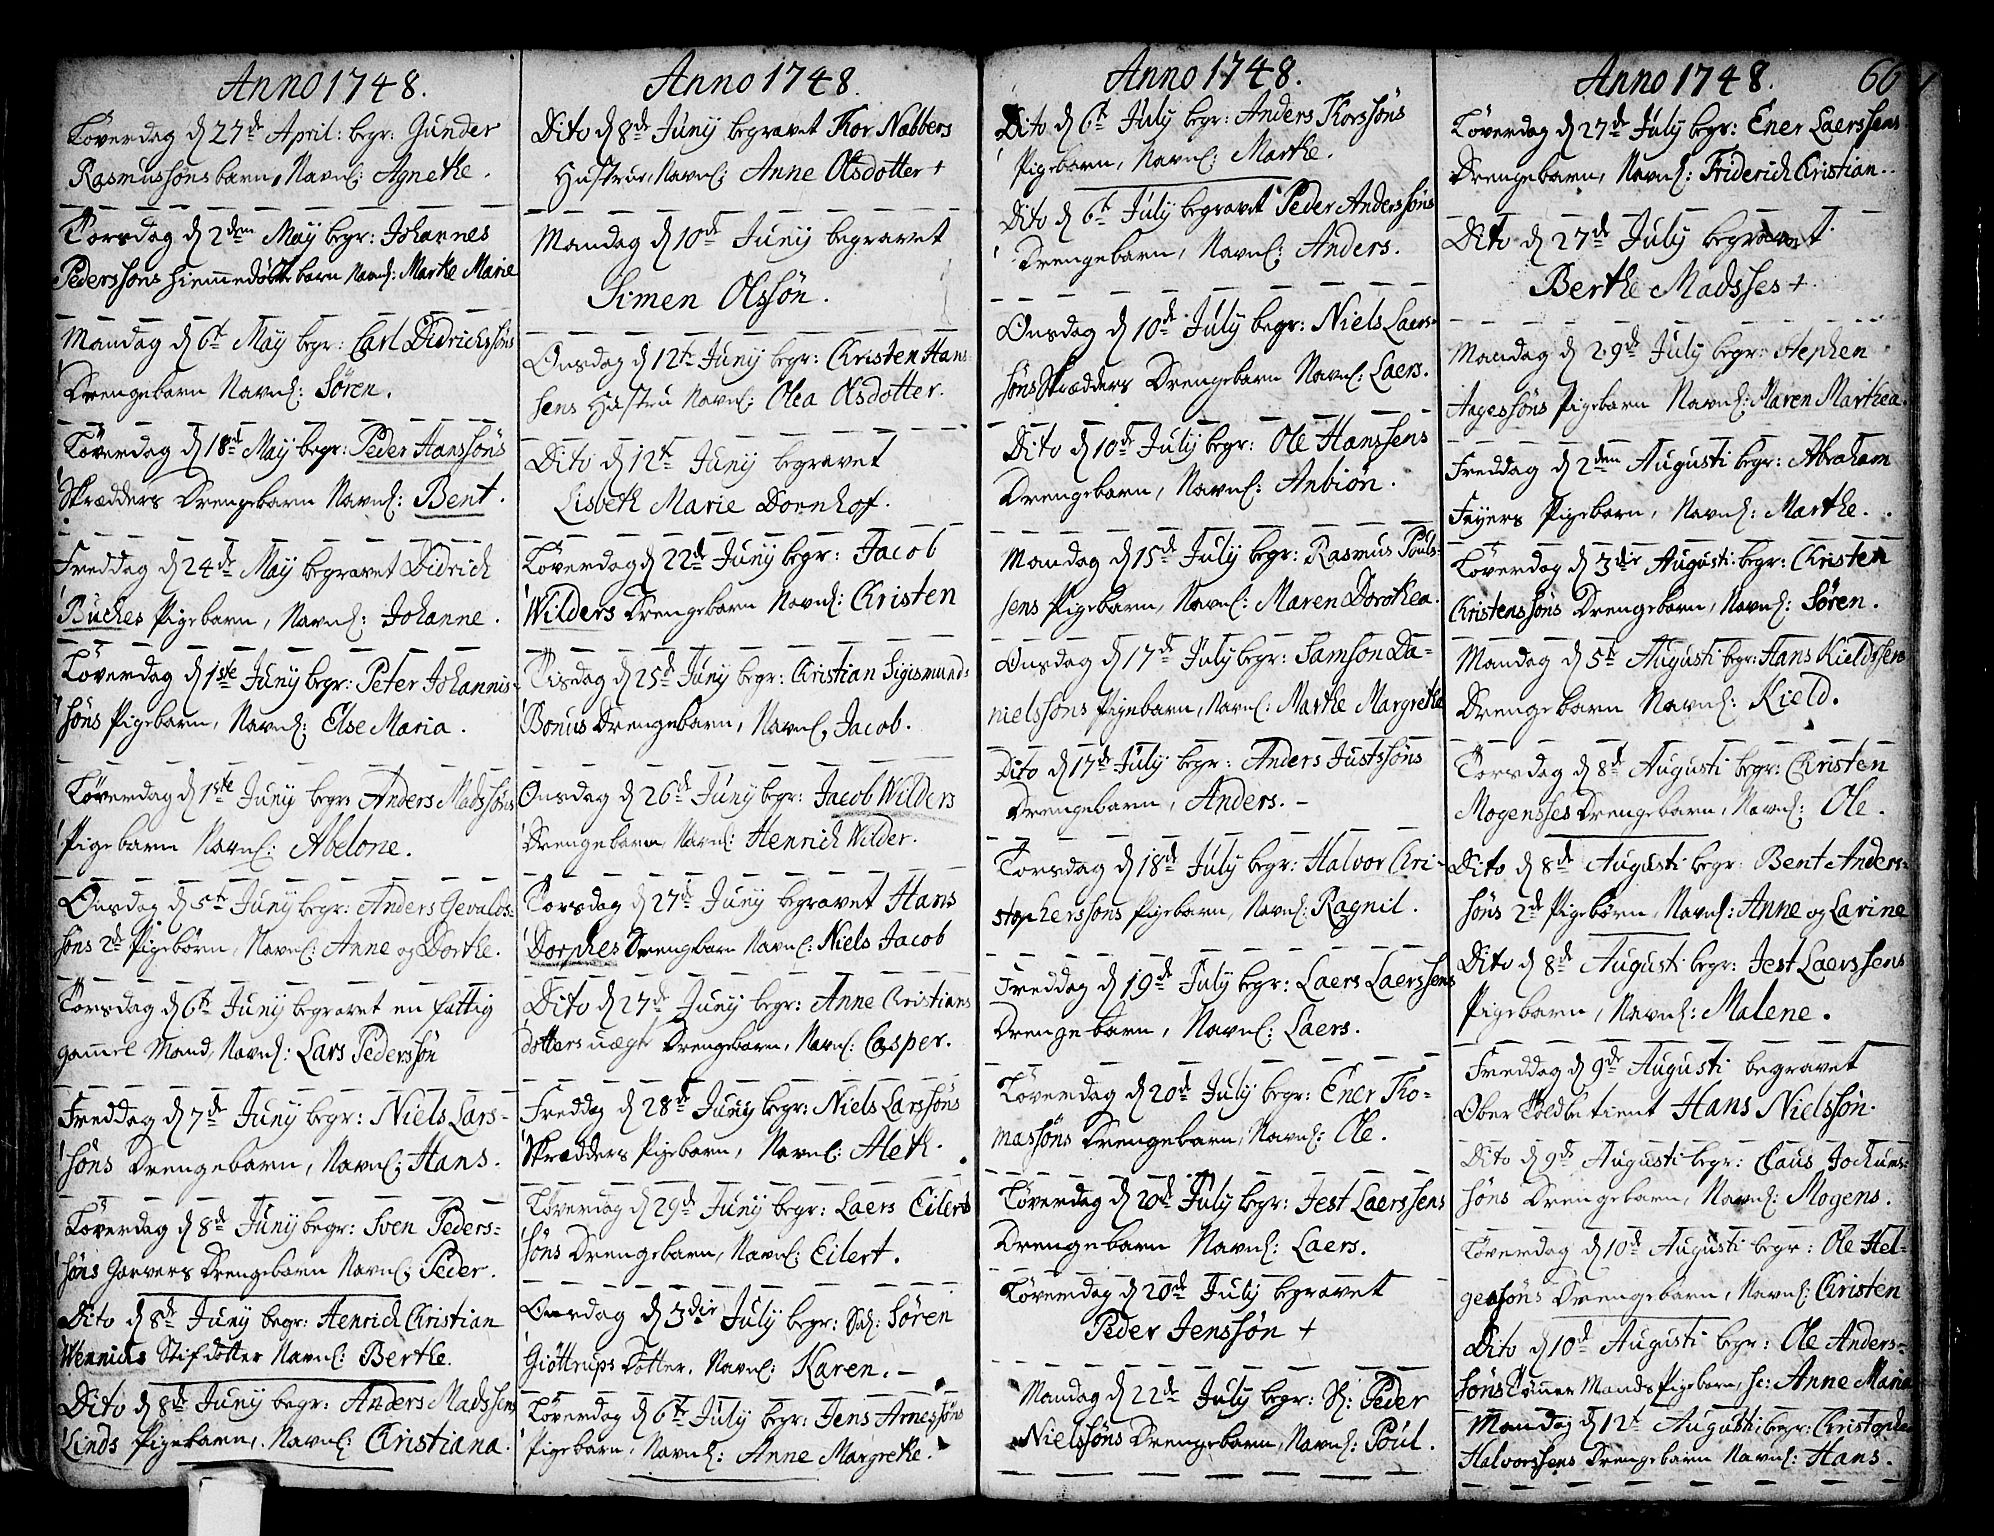 Anno 1748.
Löverdag d 27de April: begr: Gunder
Rasmussöns barn, Navnl: Agnethe.
Torsdag d 2den May begr: Johannes
Pederssöns hiemmedöbte barn Navnl: Marthe Marie
Mandag d 6t May begr: Carl Didrichssöns
Drengebarn Navnl: Sören.
Löverdag d 18de May begr: Peder Hanssöns
Skrædders Drengebarn Navnl: Bent.
Freddag d 24de May begravet Didrich
Büches Pigebarn, Navnl: Johanne.
Löverdag d 1ste Juny begr: Peter Johannis-
söns Pigebarn, Navnl: Else Maria.
Löverdag d 1ste Juny begr: Anders Madssöns
Pigebarn Navnl: Abelone.
Onsdag d 5t Juny begr: Anders Gevalds-
söns 2de Pigebörn, Navnl: Anne og Dorthe.
Torsdag d 6t Juny begravet en fattig
gammel Mand, Navnl: Lars Pederssön
Freddag d 7de Juny begr: Niels Lars-
söns Drengebarn, Navnl: Hans.
Löverdag d 8de Juny begr: Sven Peders-
söns Garvers Drengebarn Navnl: Peder.
Dito d 8de Juny begr: Henrich Christian
Wennichs Stifdotter Navnl: Berthe.
Dito d 8de Juny begr: Anders Madssens
Linds Pigebarn, Navnl: Christiana.
Anno 1748.
Dito d 8de Juny begravet Thor Nabbers
Hustrue, Navnl: Anne Olsdotter +
Mandag d 10de Juny begravet
Simen Olssön.
Onsdag d 12te Juny begr: Christen Hans-
sens Hustru Navnl: Olea Olsdotter.
Dito d 12te Juny begravet
Lisbeth Marie Dornhof.
Löverdag d 22de Juny begr: Jacob
Wilders Drengebarn Navnl: Christen
Tisdag d 25de Juny begr: Christian Sigismund
Bonus Drengebarn, Navnl: Jacob.
Onsdag d 26de Juny begr: Jacob Wilders
Drengebarn, Navnl: Henrich Wilder.
Torsdag d 27de Juny begravet Hans
Dorphes Drengbarn Navnl: Niels Jacob
Dito d 27de Juny begr: Anne Christians
dotters uægte Drengebarn, Navnl: Casper.
Freddag d 28de Juny begr: Niels Larssöns
Skrædders Pigebarn, Navnl: Aleth.
Löverdag d 29de Juny begr: Laers Eilert
söns Drengebarn, Navnl: Eilert.
Onsdag d 3die July begr: Sal: Sören
Giöttrups Dotter. Navnl: Karen. –
Löverdag d 6te July begr: Jens Arnessöns
Pigebarn, Navnl: Anne Margrethe.
Anno 1748.
Dito d 6t July begr: Anders Thorssöns
Pigebarn, Navnl: Marthe.
Dito d 6t July begravet Peder Anderssöns
Drengebarn, Navnl: Anders.
Onsdag d 10de July begr: Niels Laers-
söns Skrædders Drengebarn Navnl: Laers.
Dito d 10de July begr: Ole Hanssens
Drengebarn, Navnl: Anbiön.
Mandag d 15de July begr: Rasmus Pouls-
sens Pigebarn, Navnl: Maren Dorothea.
Onsdag d 17de July begr: Samson Da-
nielssöns Pigebarn, Navnl: Marthe Margrethe
Dito d 17de July begr: Anders Justssöns
Drengebarn, Anders. –
Torsdag d 18de July begr: Halvor Chri-
stophersöns Pigebarn, Navnl: Ragnil.
Freddag d 19de July begr: Laers Laerssens
Drengebarn, Navnl: Laers.
Löverdag d 20de July begr: Ener Tho-
massöns Drengebarn, Navnl: Ole.
Löverdag d 20de July begr: Jest Laerssens
Drengebarn Navnl: Laers.
Löverdag d 20de July begravet
Peder Jenssön +
Mandag d 22de July begr: Sl: Peder
Nielssöns Drengebarn, Navnl: Poül.
Anno 1748. 66
Löverdag d 27de July begr: Ener Laerssens
Drengebarn, Navnl: Friderich Christian.
Dito d 27de July begravet
Berthe Madsses +
Mandag d 29de July begr: Stephen
Aagessöns Pigebarn Navnl: Maren Marthea.
Freddag d 2den Augusti begr: Abraham
Feyers Pigebarn, Navnl: Marthe.
Löverdag d 3die Augusti begr: Christen
Christenssöns Drengebarn, Navnl: Sören.
Mandag d 5te Augusti begr: Hans Kieldssens
Drengebarn Navnl: Kield.
Torsdag d 8de Augusti begr: Christen
Mogensses Drengebarn, Navnl: Ole.
Dito d 8de Augusti begr: Bent Anders-
söns 2de Pigebörn, Navnl: Anne og Larine
Dito d 8de Augusti begr: Jest Laerssens
Pigebarn, Navnl: Malene.
Freddag d 9de Augusti begravet
Ober Toldbetient Hans Nielssön.
Dito d 9de Augusti begr: Claus Jochums-
söns Drengebarn, Navnl: Mogens.
Löverdag d 10de Augusti begr: Ole Hel-
gessöns Drengebarn, Navnl: Christen
Dito d 10de Augusti begr: Ole Anders-
söns Tömmer Mands Pigebarn, Anne Maria
Mandag d 12t Augusti begr: Christopher
Halvorssens Drengebarn Navnl: Hans.